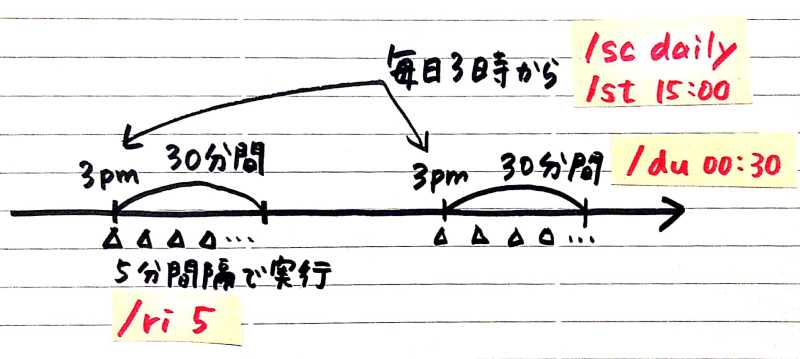 毎日3時から
/sc daily
/st 15:00
3pm
30分間
3pm
30分間
/du 00:30
△ △ △ △ …
△ △ △ △ …
5分間隔で実行
/ri 5